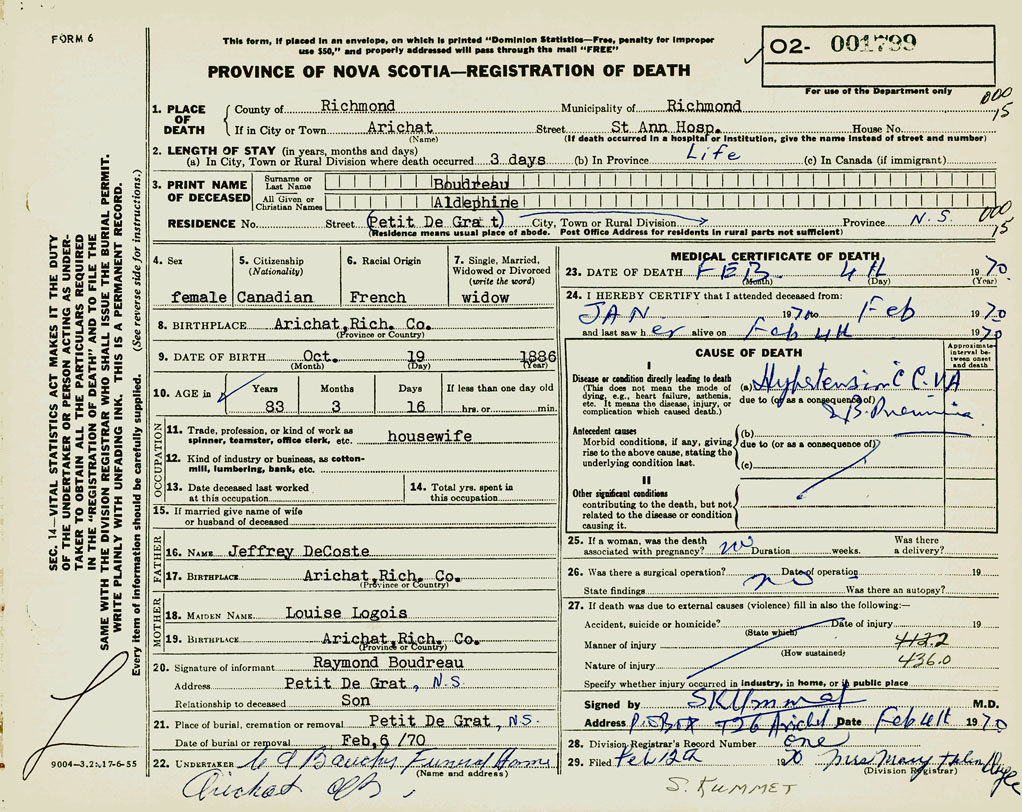 FORM 6
This form, if placed in an envelope, on which is printed "Dominion Statistics—Free, penalty for improper
use $50," and properly addressed will pass through the mail "FREE"
O2- 001799
For use of the Department only
PROVINCE OF NOVA SCOTIA—REGISTRATION OF DEATH
000
15
1. PLACE OF DEATH
County of Richmond Municipality of Richmond
If in City or Town Arichat Street St Ann Hosp. House No.
(Name) (If death occurred in a hospital or institution, give the name instead of street and number)
2. LENGTH OF STAY (in years, months and days)
(a) In City, Town or Rural Division where death occurred 3 days (b) In Province Life (c) In Canada (if immigrant)
3. PRINT NAME OF DECEASED
Surname or Last Name Boudreau
All Given or Christian Names Aldephine
RESIDENCE No. Street (Petit De Grat) City, Town or Rural Division Province N.S.
000
15
(Residence means usual place of abode. Post Office Address for residents in rural parts not sufficient)
4. Sex
female
5. Citizenship (Nationality)
Canadian
6. Racial Origin
French
7. Single, Married, Widowed or Divorced (write the word)
widow
8. BIRTHPLACE Arichat,Rich. Co.
(Province or Country)
9. DATE OF BIRTH Oct. 19 1886
(Month) (Day) (Year)
10. AGE in
Years Months Days If less than one day old
83 3 16 hrs. or min.
OCCUPATION
11. Trade, profession, or kind of work as
spinner, teamster, office clerk, etc. housewife
12. Kind of industry or business, as cotton-
mill, lumbering, bank, etc.
13. Date deceased last worked
at this occupation
14. Total yrs. spent in
this occupation
15. If married give name of wife
or husband of deceased
FATHER
16. NAME Jeffrey DeCoste
17. BIRTHPLACE Arichat,Rich. Co.
(Province or Country)
MOTHER
18. MAIDEN NAME Louise Logois
19. BIRTHPLACE Arichat,Rich. Co.
(Province or Country)
20. Signature of informant Raymond Boudreau
Address Petit De Grat, N.S.
Relationship to deceased Son
21. Place of burial, cremation or removal Petit De Grat, N.S.
Date of burial or removal Feb,6 /70
22. UNDERTAKER Funeral Home
(Name and address)
Arichat
MEDICAL CERTIFICATE OF DEATH
23. DATE OF DEATH FEB 4th 1970
(Month) (Day) (Year)
24. I HEREBY CERTIFY that I attended deceased from:
JAN 1970 to Feb 1970
and last saw her alive on Feb 4th 1970
CAUSE OF DEATH
Approximate interval between onset and death
I
Disease or condition directly leading to death
(This does not mean the mode of
dying, e.g., heart failure, asthenia,
etc. It means the disease, injury, or
complication which caused death.)
(a) Hypertension C C.V.A
due to (or as a consequence of)
Antecedent causes
Morbid conditions, if any, giving
rise to the above cause, stating the
underlying condition last.
(b)
due to (or as a consequence of)
(c)
II
Other significant conditions
contributing to the death, but not
related to the disease or condition
causing it.
25. If a woman, was the death
associated with pregnancy? no Duration weeks. Was there
a delivery?
26. Was there a surgical operation? no Date of operation 19
State findings Was there an autopsy?
27. If death was due to external causes (violence) fill in also the following:—
Accident, suicide or homicide? Date of injury 19
(State which)
Manner of injury 412.2
(How sustained)
Nature of injury 436.0
Specify whether injury occurred in industry, in home, or in public place
Signed by M.D.
Address P.O Box 126 Arichat Date Feb 4th 1970
28. Division Registrar's Record Number one
29. Filed Feb 12th 1970 Mrs Mary Helen
(Division Registrar)
S. KUMMET
SEC. 14—VITAL STATISTICS ACT MAKES IT THE DUTY
OF THE UNDERTAKER OR PERSON ACTING AS UNDER-
TAKER TO OBTAIN ALL THE PARTICULARS REQUIRED
IN THE "REGISTRATION OF DEATH" AND TO FILE THE
SAME WITH THE DIVISION REGISTRAR WHO SHALL ISSUE THE BURIAL PERMIT.
WRITE PLAINLY WITH UNFADING INK. THIS IS A PERMANENT RECORD.
Every item of information should be carefully supplied. (See reverse side for instructions.)
9004—3.2м.17-6-55